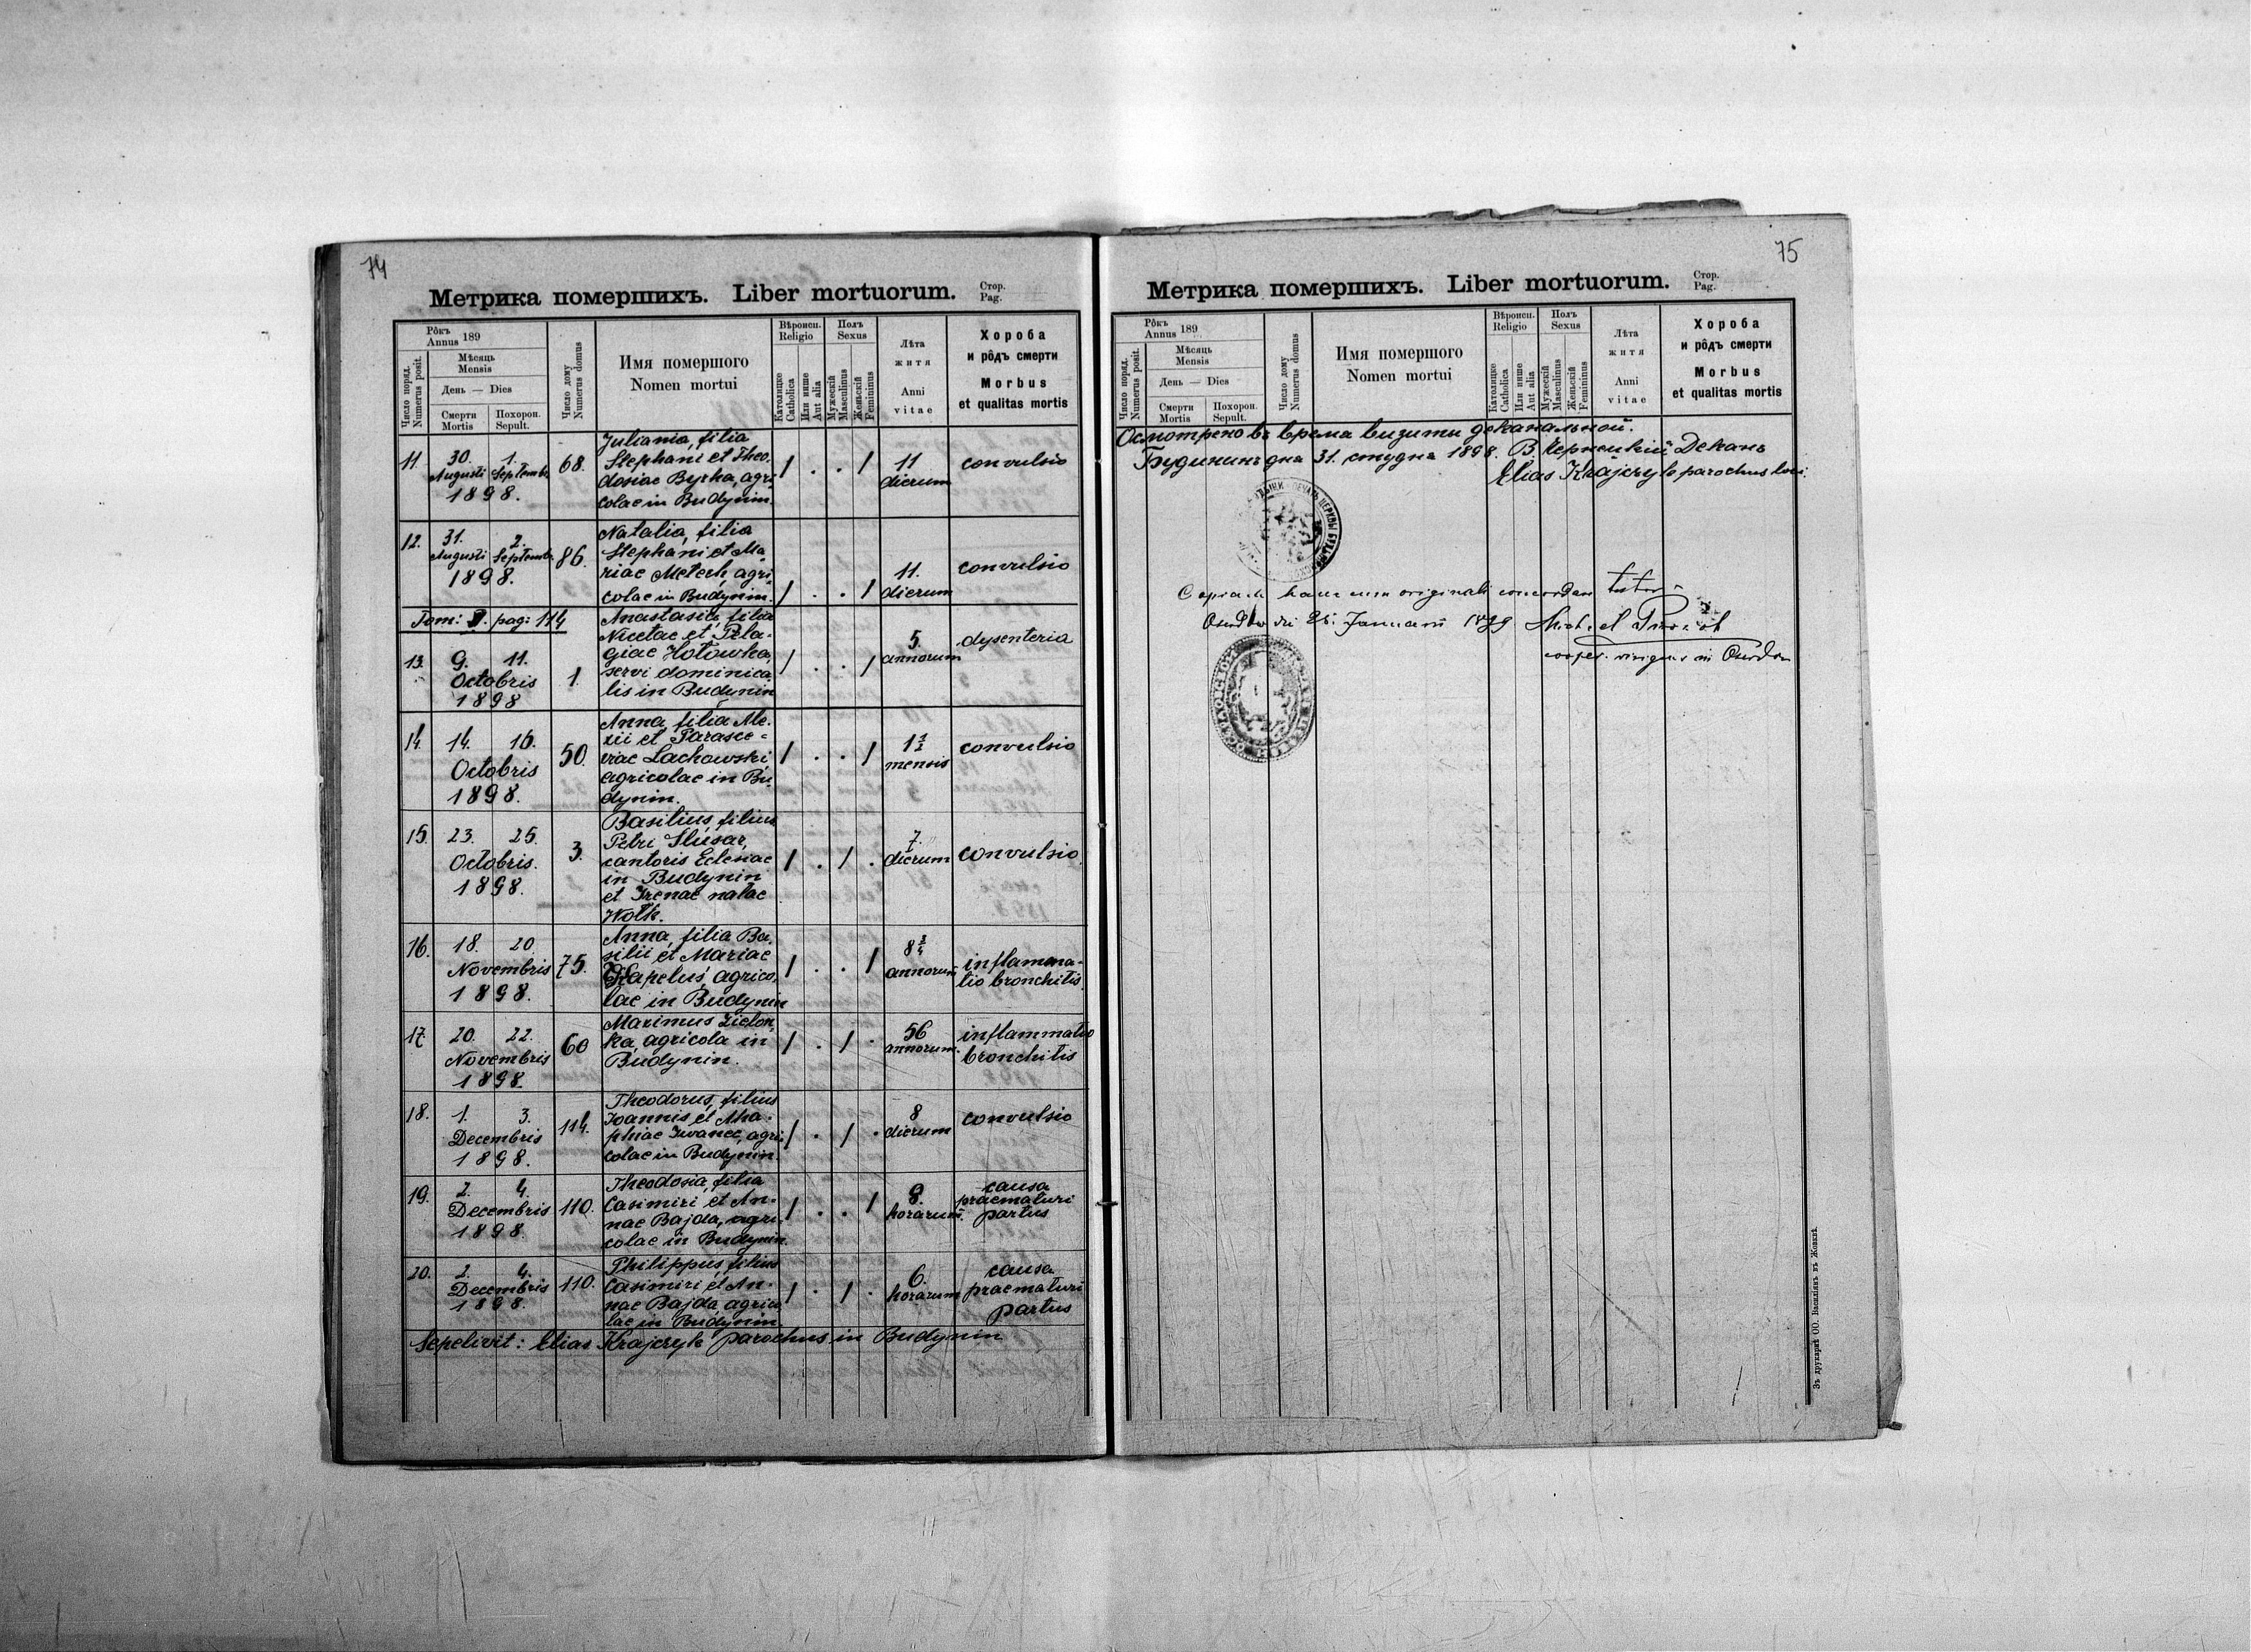 74
Метрика помершихъ. Liber mortuorum. Стор. Pag.
Рôкъ Annus 189
Мѣсяць Mensis
День — Dies
Число поряд. Numerus posit.
Смерти Mortis
Похорон. Sepult.
Число дому Numerus domus
Имя помершого
Nomen mortui
Вѣроисп. Religio
Католицке Catholica
Или инше Aut alia
Полъ Sexus
Мужескій Masculinus
Женьскій Femininus
Лѣта житя
Anni vitae
Хороба и рôдъ смерти
Morbus et qualitas mortis
11. 30. Augusti 1. Septembr. 1898. 68.
Juliania, filia
Stephani et Theo-
dosiae Byrka, agri-
colae in Budynin.
/ . . / 11 dierum convulsio
12. 31. Augusti 2. Septembr. 1898. 86.
Natalia, filia
Stephani et Ma-
riae Metech, agri-
colae in Budynin.
/ . . / 11. dierum convulsio
Tom: pag: 114
13. 9. 11. Octobris 1898 1.
Anastasia, filia
Nicetae et Pela-
giae Hotowka,
servi dominica-
lis in Budynin
/ . . / 5 annorum dysenteria
14. 14. 16. Octobris 1898. 50.
Anna, filia Ale-
xii et Parasce-
viae Lachowski,
agricolae in Bu-
dynin.
/ . . / 1½ mensis convulsio
15. 23. 25. Octobris. 1898. 3.
Basilius, filius
Petri Slusar,
cantoris Eclesiae
in Budynin
et Irenae natae
Wolk.
/ . / . 7. dierum convulsio
16. 18. 20 Novembris 1898. 75.
Anna, filia Ba-
silii et Mariae
Kapelus, agrico-
lae in Budynin
/ . . / 8¾ annorum inflamma-
tio bronchitis
17. 20. 22. Novembris 1898. 60
Maximus Zielon-
ka, agricola in
Budynin.
/ . / . 56 annorum. inflammatio
bronchitis
18. 1. 3. Decembris 1898. 114.
Theodorus, filius
Joannis et Aha-
phiae Iwanec, agri-
colae in Budynin.
/ . / . 8 dierum convulsio
19. 2. 4. Decembris 1898. 110.
Theodosia, filia
Casimiri et An-
nae Bajda, agri-
colae in Budynin.
/ . . / 8. horarum. causa
praematuri
partus
20. 2. 4. Decembris 1898. 110.
Philippus, filius
Casimiri et An-
nae Bajda, agrico-
lae in Budynin.
/ . / . 6. horarum causa
praematuri
partus
Sepelivit: Elias Krajczyk parochus in Budynin
75
Метрика помершихъ. Liber mortuorum. Стор. Pag.
Рôкъ Annus 189
Мѣсяць Mensis
День — Dies
Число поряд. Numerus posit.
Смерти Mortis
Похорон. Sepult.
Число дому Numerus domus
Имя помершого
Nomen mortui
Вѣроисп. Religio
Католицке Catholica
Или инше Aut alia
Полъ Sexus
Мужескій Masculinus
Женьскій Femininus
Лѣта житя
Anni vitae
Хороба и рôдъ смерти
Morbus et qualitas mortis
Осмотрено въ время визиты деканальной.
Будининъ дня 31. студня 1898. Деканъ
Elias Krajczyk parochus loci.
hanc cum originali concordare testor
Januarii 1899
Зъ друкарнѣ ОО. Василіянъ въ Жовквѣ.